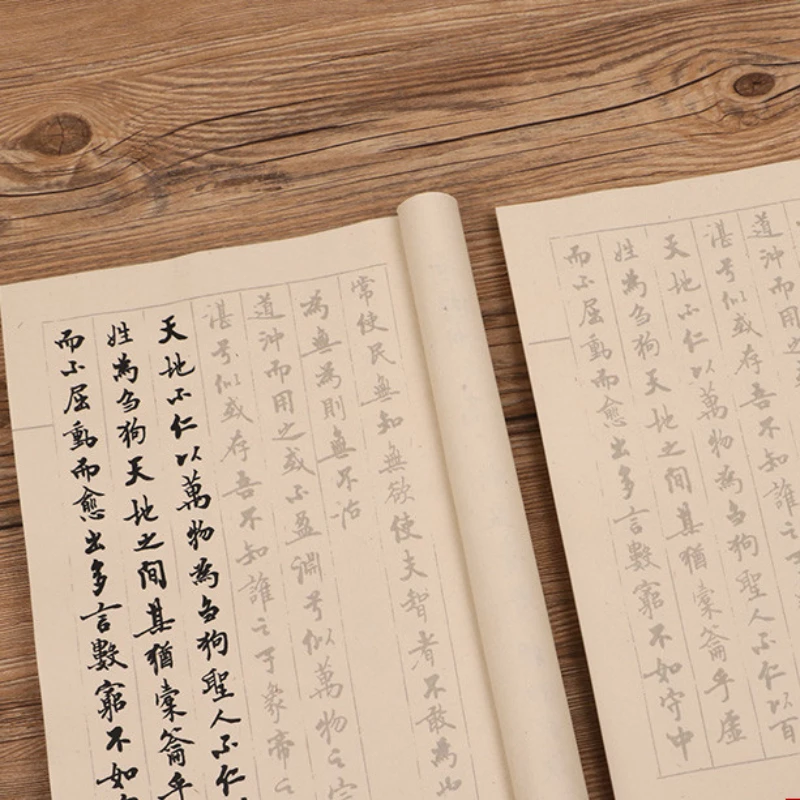 常使民無知無欲使夫智者不敢為也
為無為則無不治
道沖而用之或不盈淵兮似萬物之宗
湛兮似或存吾不知誰之子象帝之
天地不仁以萬物為芻狗聖人不仁
姓為芻狗天地之間其猶橐籥乎
而不屈動而愈出多言數窮不如
道沖而用之
湛兮似或存吾不知誰之
天地不仁以萬物為芻狗聖人不仁以百
姓為芻狗天地之間其猶橐籥乎虛
而不屈動而愈出多言數窮不如守中